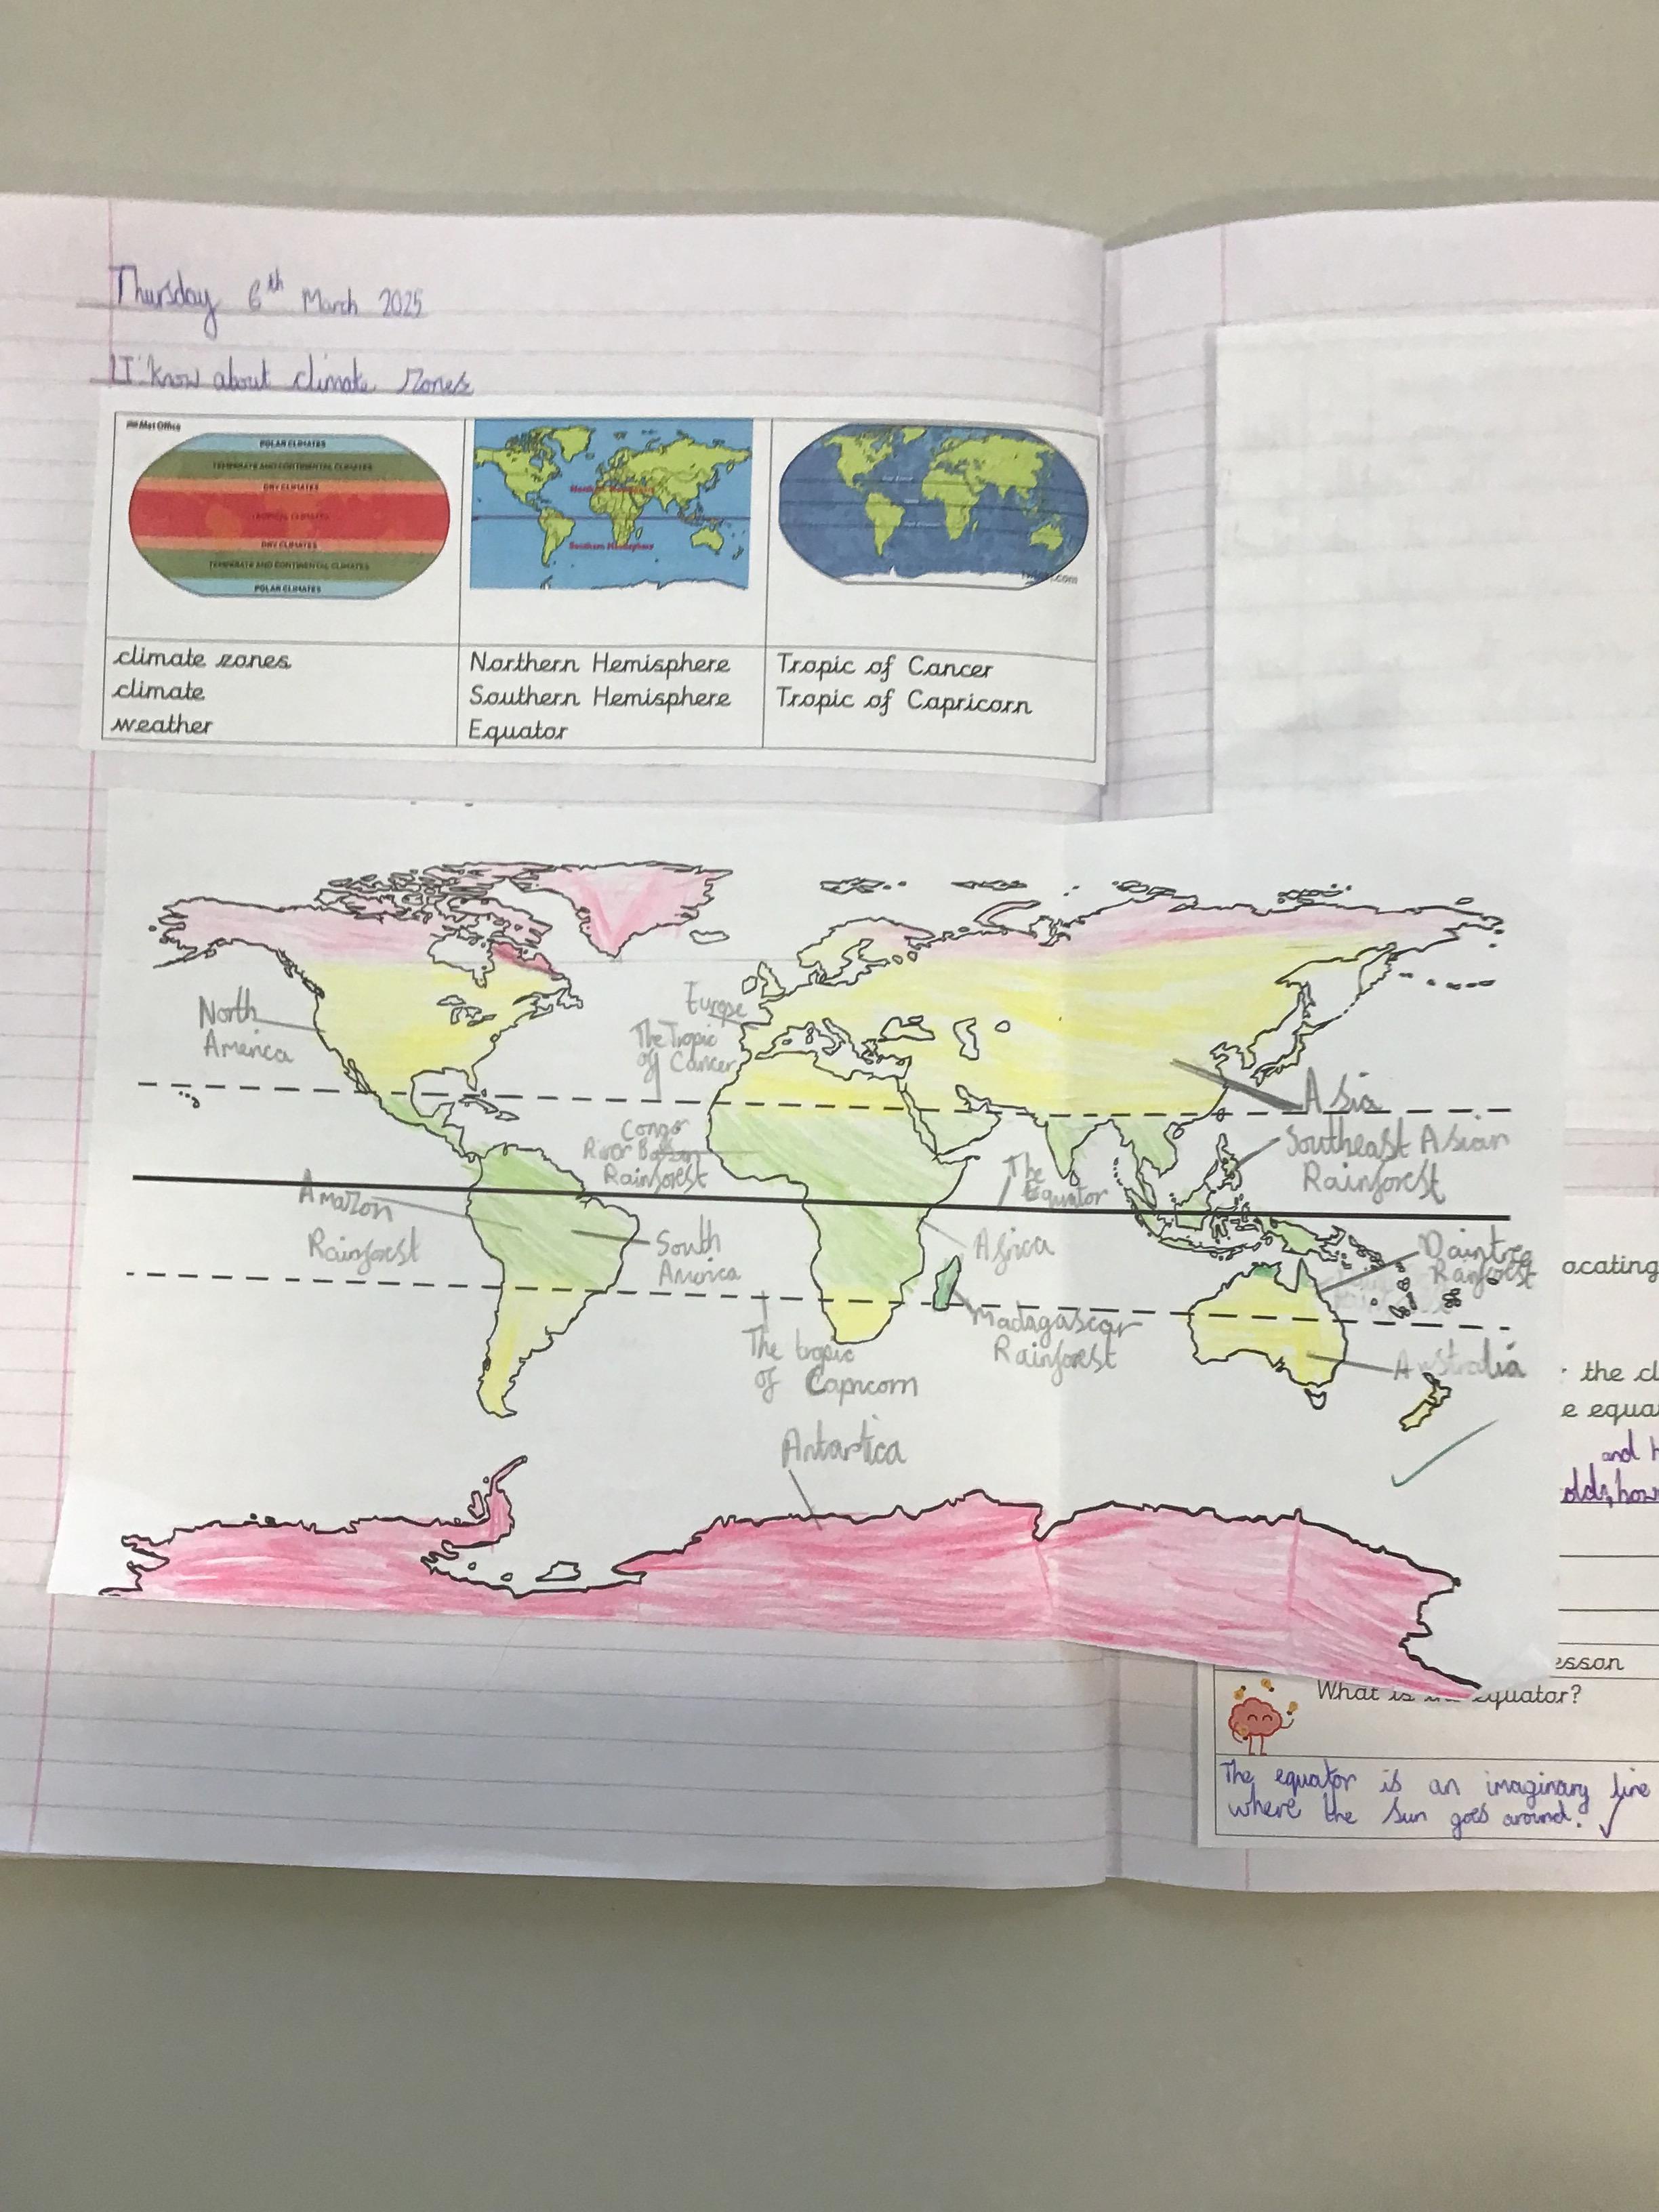 Thursday 6th March 2025
LI: Know about climate zones
Met Office
POLAR CLIMATES
TEMPERATE AND CONTINENTAL CLIMATES
DRY CLIMATES
TROPICAL CLIMATES
DRY CLIMATES
TEMPERATE AND CONTINENTAL CLIMATES
POLAR CLIMATES
Northern Hemisphere
Southern Hemisphere
climate zones
climate
weather
Northern Hemisphere
Southern Hemisphere
Equator
Tropic of Cancer
Tropic of Capricorn
North
America
Europe
The Tropic
of Cancer
Congo
River Basin
Rainforest
Amazon
Rainforest
South
America
The
Equator
Africa
Asia
Southeast Asian
Rainforest
Daintree
Rainforest
Madagascar
Rainforest
Australia
The tropic
of Capricorn
Antartica
ocating
the cl
e equa
and h
olds, how
esson
What is the equator?
The equator is an imaginary line
where the sun goes around.